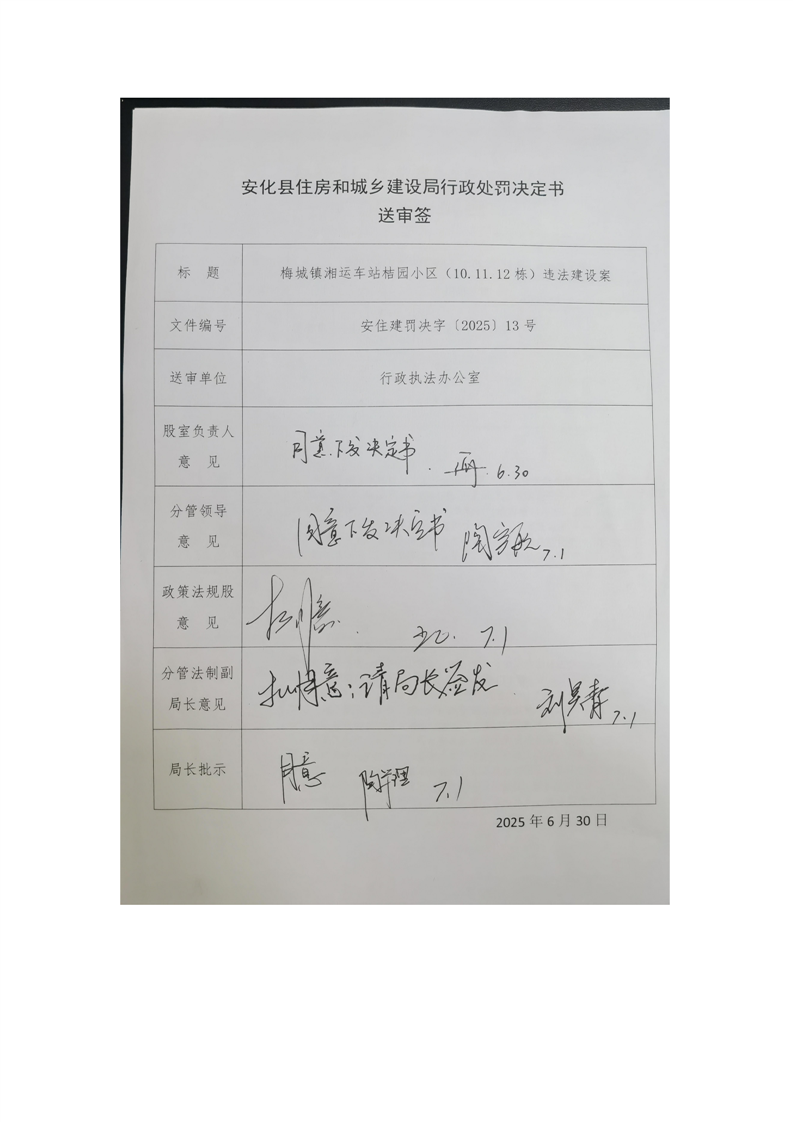 安化县住房和城乡建设局行政处罚决定书
送审签
标 题 梅城镇湘运车站桔园小区（10.11.12 栋）违法建设案
文件编号 安住建罚决字〔2025〕13 号
送审单位 行政执法办公室
股室负责人
意 见
同意下发决定书. 6.30
分管领导
意 见
同意下发决定书 7.1
政策法规股
意 见
拟同意. 7.1
分管法制副
局长意见
拟同意；请局长签发 刘昊春 7.1
局长批示
同意 7.1
2025 年 6 月 30 日